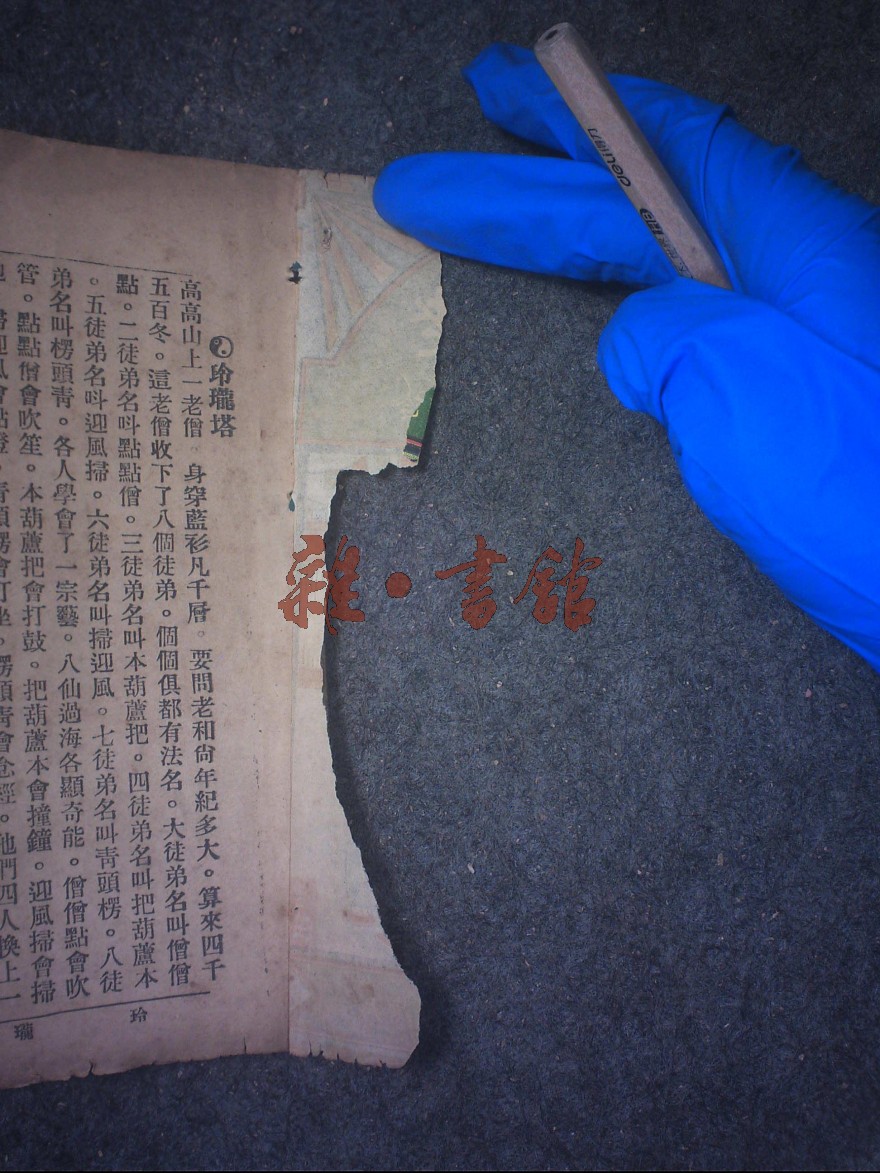 玲瓏塔
高高山上一老僧。身穿藍衫凡千層。要問老和尙年紀多大。算來四千
五百冬。這老僧收下了八個徒弟。個個俱都有法名。大徒弟名叫僧僧
點。二徒弟名呌點點僧。三徒弟名叫本葫蘆把。四徒弟名叫把葫蘆本
。五徒弟名呌迎風掃。六徒弟名叫掃迎風。七徒弟名叫靑頭楞。八徒
弟名叫楞頭靑。各人學會了一宗藝。八仙過海各顯奇能。僧僧點會吹
管。點點僧會吹笙。本葫蘆把會打鼓。把葫蘆本會撞鐘。迎風掃會掃
玲
瓏
雜·書館
deli得力